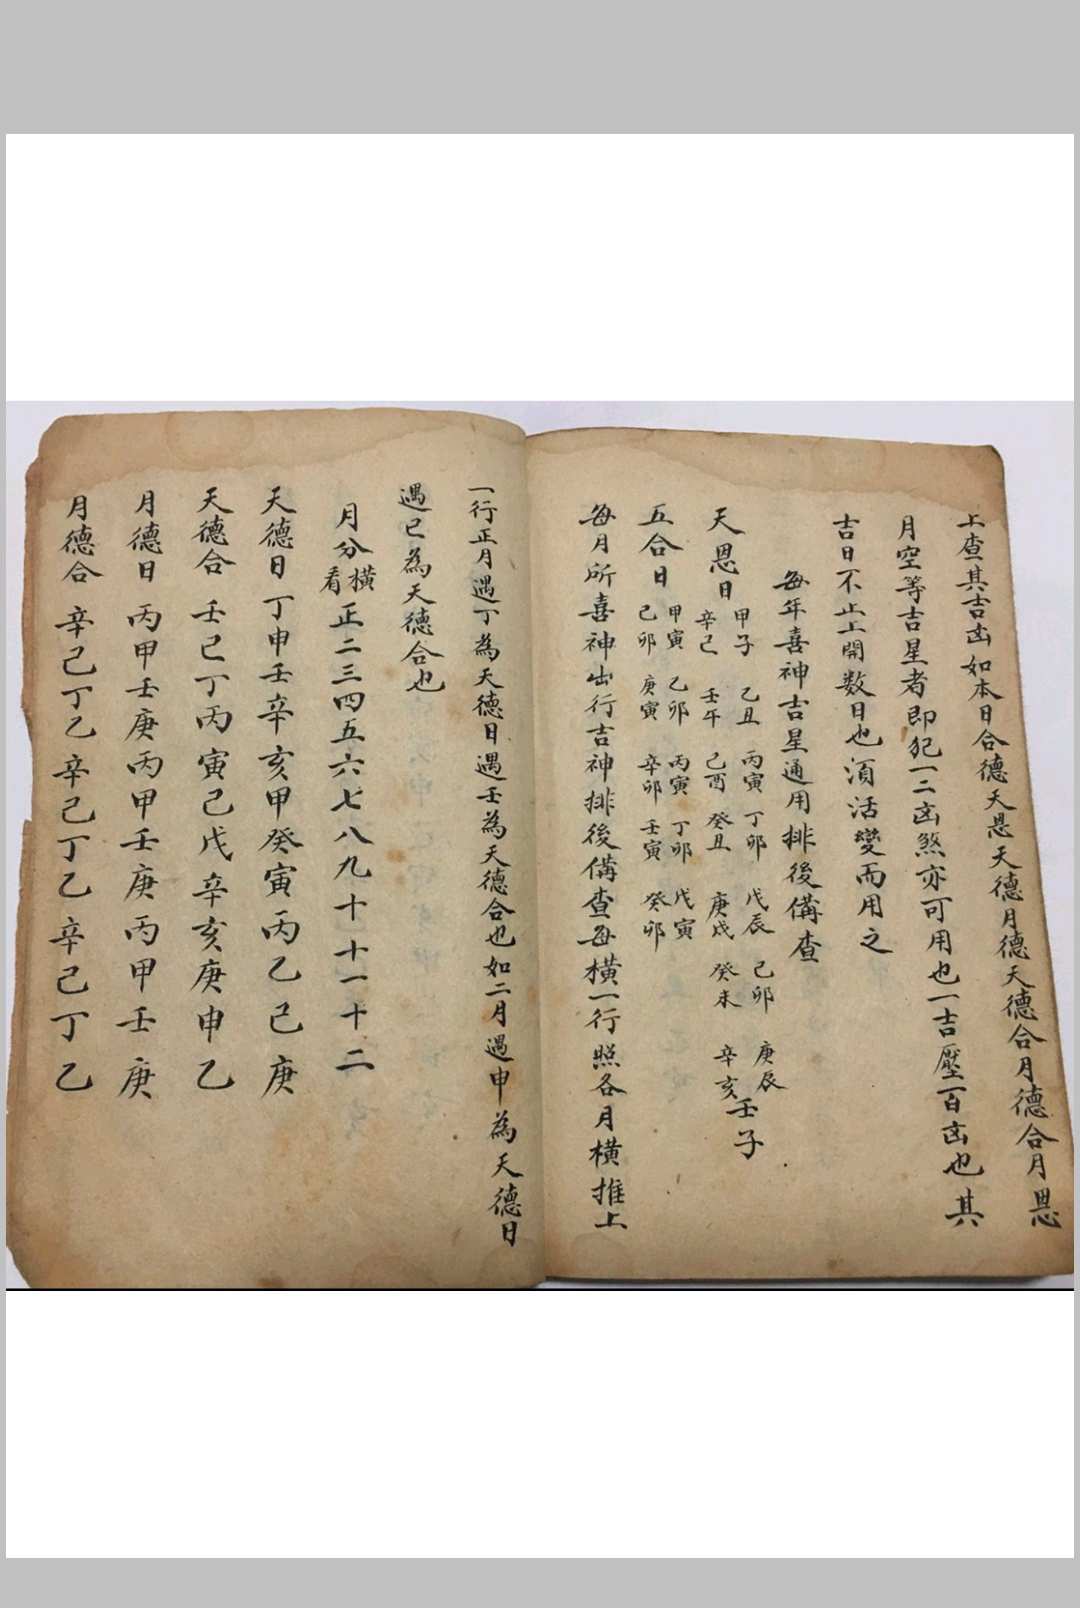 上查其吉凶如本日合德天恩天德月德天德合月德合月恩
月空等吉星者即犯一二凶煞亦可用也一吉壓百凶也其
吉日不止上開數日也須活變而用之
每年喜神吉星通用排後備查
天恩日
甲子 乙丑 丙寅 丁卯 戊辰 己卯 庚辰
辛巳 壬午 己酉 癸丑 庚戌 癸未 辛亥 壬子
五合日
甲寅 乙卯 丙寅 丁卯 戊寅
己卯 庚寅 辛卯 壬寅 癸卯
每月所喜神出行吉神排後備查每橫一行照各月橫推上
一行正月遇丁為天德日遇壬為天德合也如二月遇申為天德日
遇巳為天德合也
月分橫看 正二三四五六七八九十十一十二
天德日 丁申壬辛亥甲癸寅丙乙己庚
天德合 壬巳丁丙寅己戊辛亥庚申乙
月德日 丙甲壬庚丙甲壬庚丙甲壬庚
月德合 辛己丁乙辛己丁乙辛己丁乙